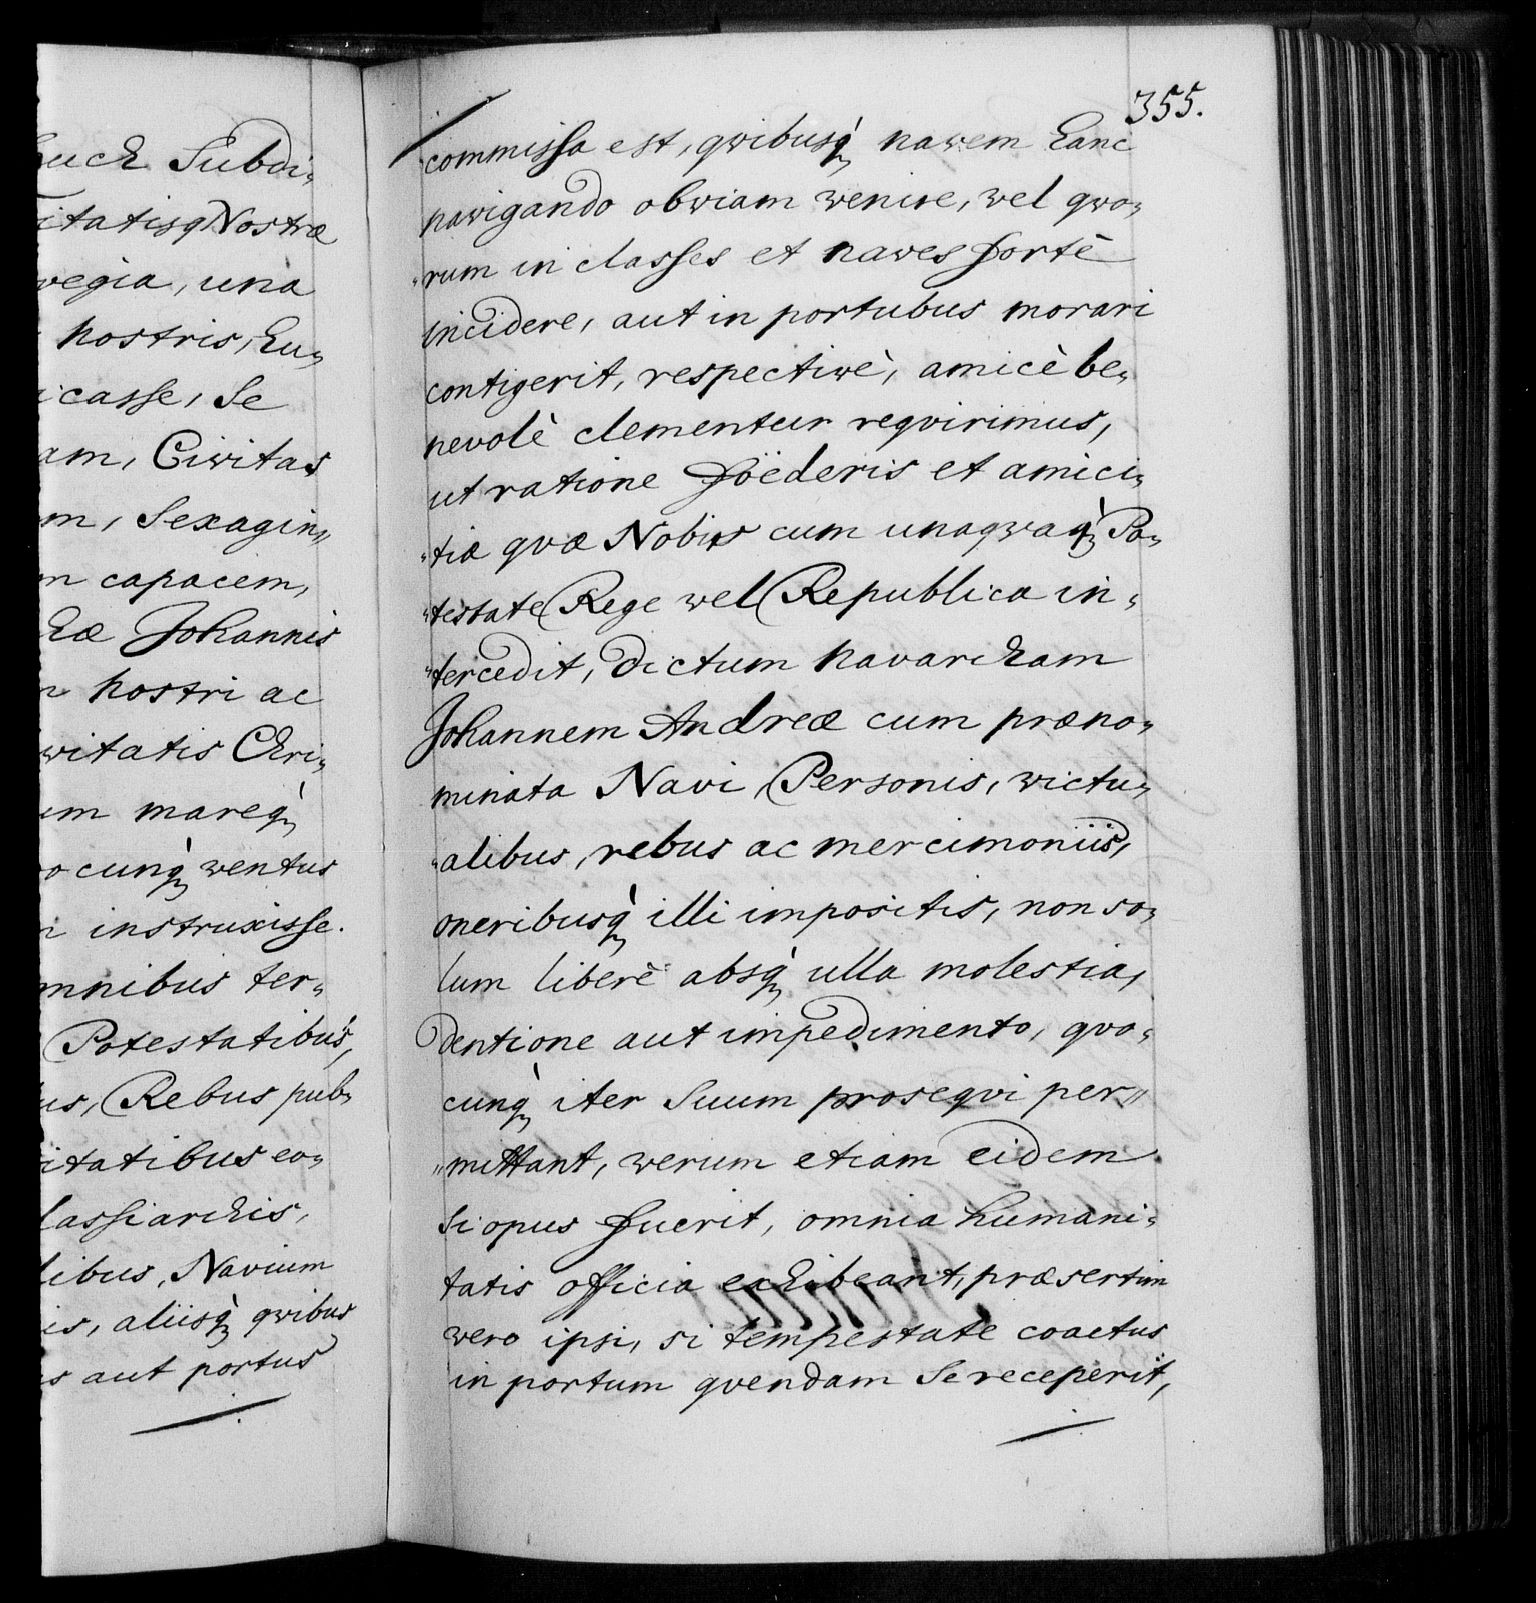 Subdi„
itatisq Nostræ
vegia, una
nostris, Eu„
icasse, se
am, Civitas
m, Sexagin„
m capacem,
hæ Johannis
nostri ac
vitatis Chri„
um mareq́
ocunq́ ventus
instruxisse.
mnibus ter„
Potestatibus,
us, Rebus pub„
itatibus eo„
lassiarchis,
libus, Navium
is, aliisq́ qvibus
s aut portus
355.
commissa est, qvibusq́ navem hanc
navigando obviam venire, vel qvo„
„rum in classes et naves fortè
incidere, aut in portubus morari
contigerit, respectivè, amicè be„
nevolè clementeur reqvirimus,
ut ratione föederis et amici„
„tiæ qvæ Nobis cum unaqvaq́ Po„
„testate Rege vel Republica in„
„tercedit, dictum navarcham
Johannem Andreæ cum præno„
minata Navi, Personis, victu„
„alibus, rebus ac mercimoniis,
oneribusq́ illi impositis, non so„
lum liberè absq́ ulla molestia,
dentione aut impedimento, qvo„
cunq́ iter suum proseqvi per„
„mittant, verum etiam eidem
si opus fuerit, omnia humani„
tatis officia exhibeant, præsertim
vero ipsi, si tempestate coactus
in portum qvendam se receperit,